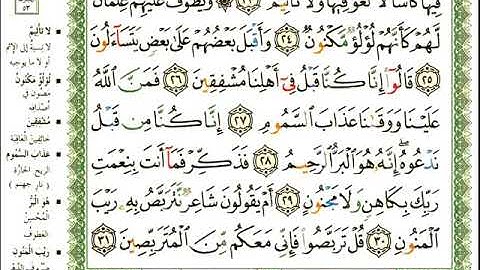 فِيهَا كَأْسًا لَّا لَغْوٌ فِيهَا وَلَا تَأْثِيمٌ ٢٣ وَيَطُوفُ عَلَيْهِمْ غِلْمَانٌ
لَّهُمْ كَأَنَّهُمْ لُؤْلُؤٌ مَّكْنُونٌ ٢٤ وَأَقْبَلَ بَعْضُهُمْ عَلَىٰ بَعْضٍ يَتَسَآءَلُونَ
٢٥ قَالُوٓا۟ إِنَّا كُنَّا قَبْلُ فِىٓ أَهْلِنَا مُشْفِقِينَ ٢٦ فَمَنَّ ٱللَّهُ
عَلَيْنَا وَوَقَىٰنَا عَذَابَ ٱلسَّمُومِ ٢٧ إِنَّا كُنَّا مِن قَبْلُ
نَدْعُوهُ ۖ إِنَّهُۥ هُوَ ٱلْبَرُّ ٱلرَّحِيمُ ٢٨ فَذَكِّرْ فَمَآ أَنتَ بِنِعْمَتِ
رَبِّكَ بِكَاهِنٍ وَلَا مَجْنُونٍ ٢٩ أَمْ يَقُولُونَ شَاعِرٌ نَّتَرَبَّصُ بِهِۦ رَيْبَ
ٱلْمَنُونِ ٣٠ قُلْ تَرَبَّصُوا۟ فَإِنِّى مَعَكُم مِّنَ ٱلْمُتَرَبِّصِينَ ٣١
لا تأثيم
لؤلؤ مكنون
مصون في
أصدافه
مشفقين
خائفين العاقبة
عذاب السموم
الريح الحارة
(نار جهنم)
هو البر
المحسن
العطوف
ريب المنون